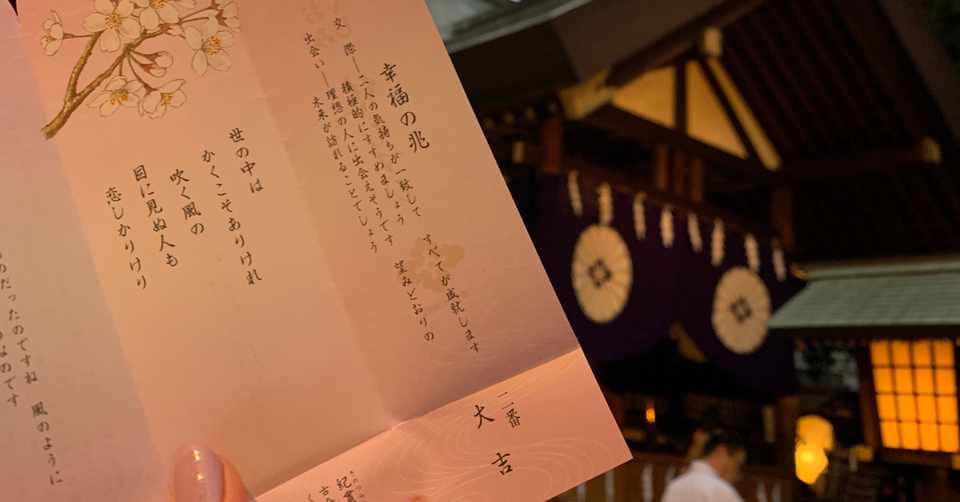 二番
大吉
幸福の兆
交際―二人の気持ちが一致して すべてが成就します
積極的にすすめましょう
出会い―理想の人に出会えそうです 望みどおりの
未来が訪れることでしょう
世の中は
かくこそありけれ
吹く風の
目に見ぬ人も
恋しかりけり
だったのですね 風のように
なのです